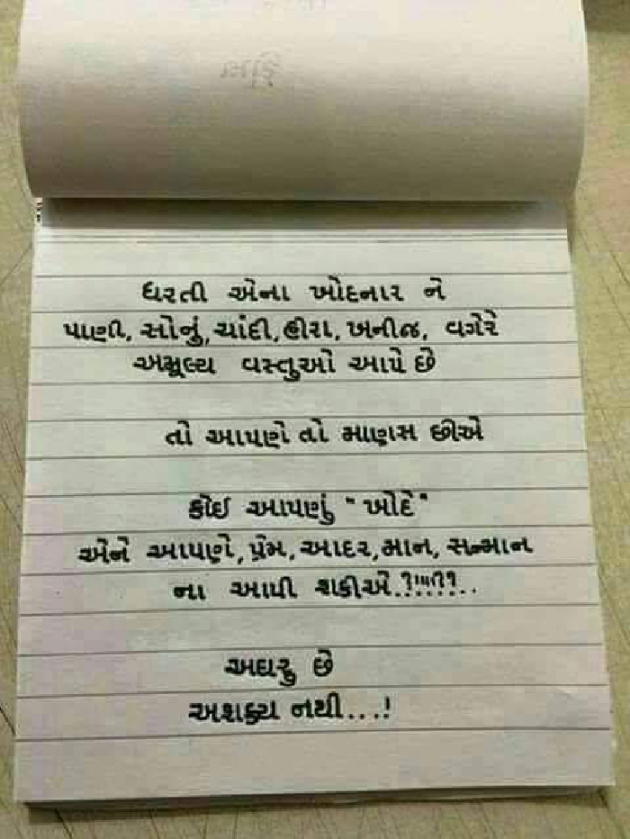 ધરતી એના ખોદનાર ને
પાણી, સોનું, ચાંદી, હીરા, ખનીજ, વગેરે
અમૂલ્ય વસ્તુઓ આપે છે
તો આપણે તો માણસ છીએ
કોઈ આપણું "ખોદે"
એને આપણે, પ્રેમ, આદર, માન, સન્માન
ના આપી શકીએ
અઘરુ છે
અશક્ય નથી...!